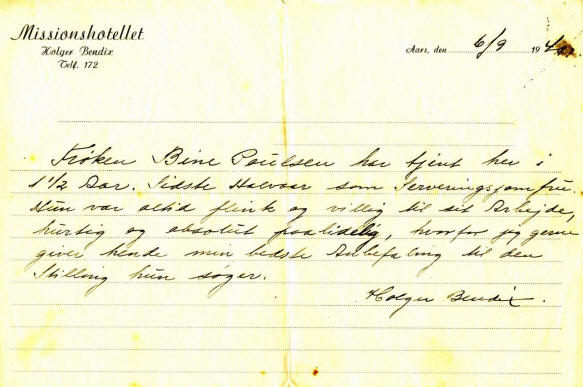 Missionshotellet
Holger Bendix
Telf. 172
Aars, den 6/9 19
Frøken Bine Poulsen har tjent her i
1 1/2 Aar. Sidste Halvaar som Serveringsjomfru.
Hun var altid flink og villig til sit Arbejde,
hurtig og absolut paalidelig, hvorfor jeg gerne
giver hende min bedste Anbefaling til den
Stilling hun søger.
Holger Bendix.